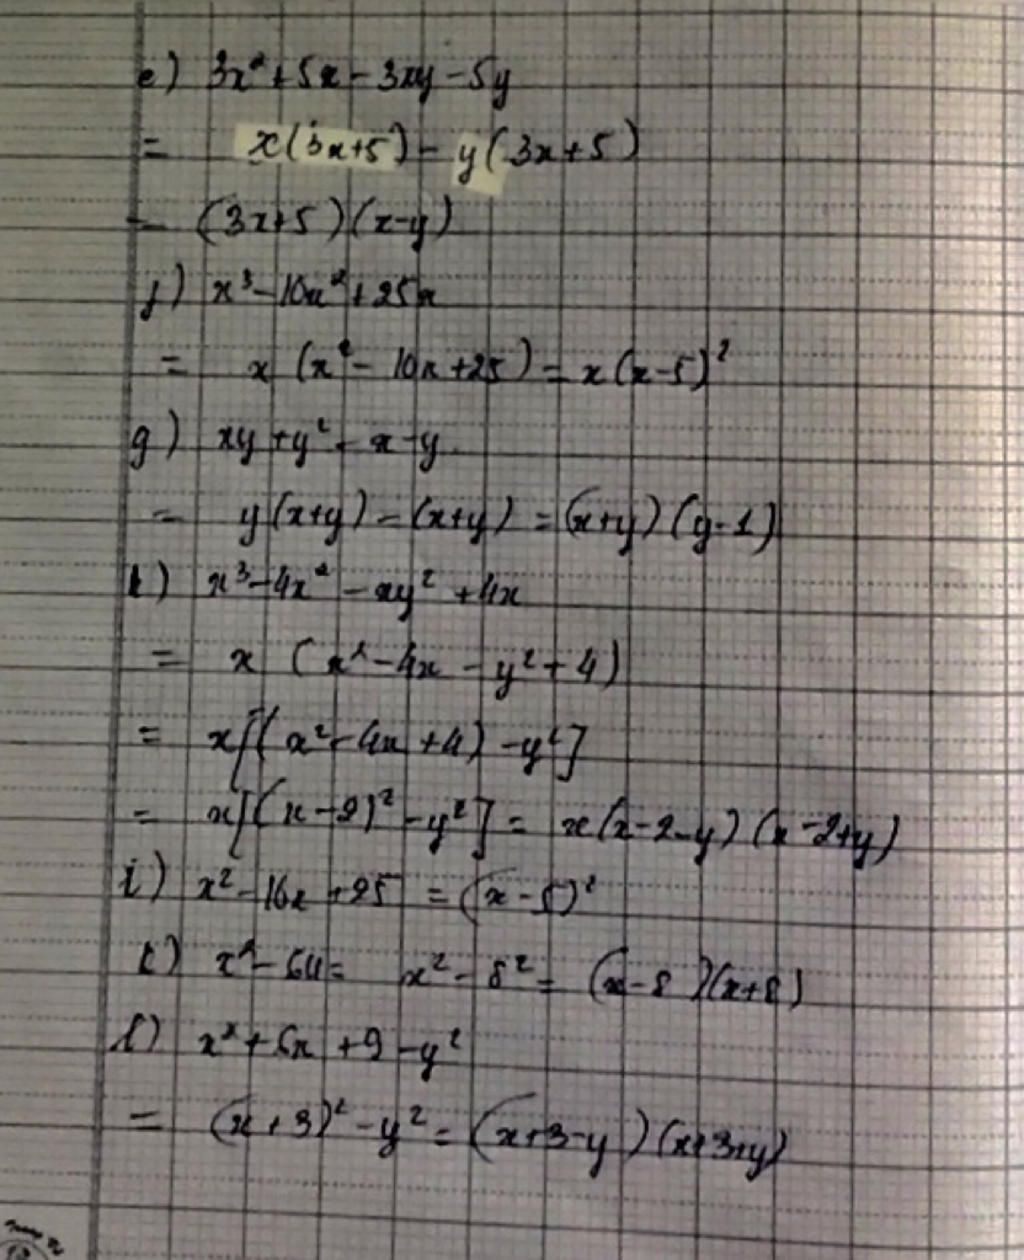 e) 3x² + 5x - 3xy - 5y
= x(3x+5) - y(3x+5)
= (3x+5)(x-y)
f) x³ - 10x² + 25x
= x (x² - 10x + 25) = x(x-5)²
g) xy + y² - x - y
= y(x+y) - (x+y) = (x+y)(y-1)
h) x³ - 4x² - xy² + 4x
= x (x² - 4x - y² + 4)
= x[(x² - 4x + 4) - y²]
= x[(x-2)² - y²] = x(x-2-y)(x-2+y)
i) x² - 10x + 25 = (x-5)²
k) x² - 64 = x² - 8² = (x-8)(x+8)
l) x² + 6x + 9 - y²
= (x+3)² - y² = (x+3-y)(x+3+y)